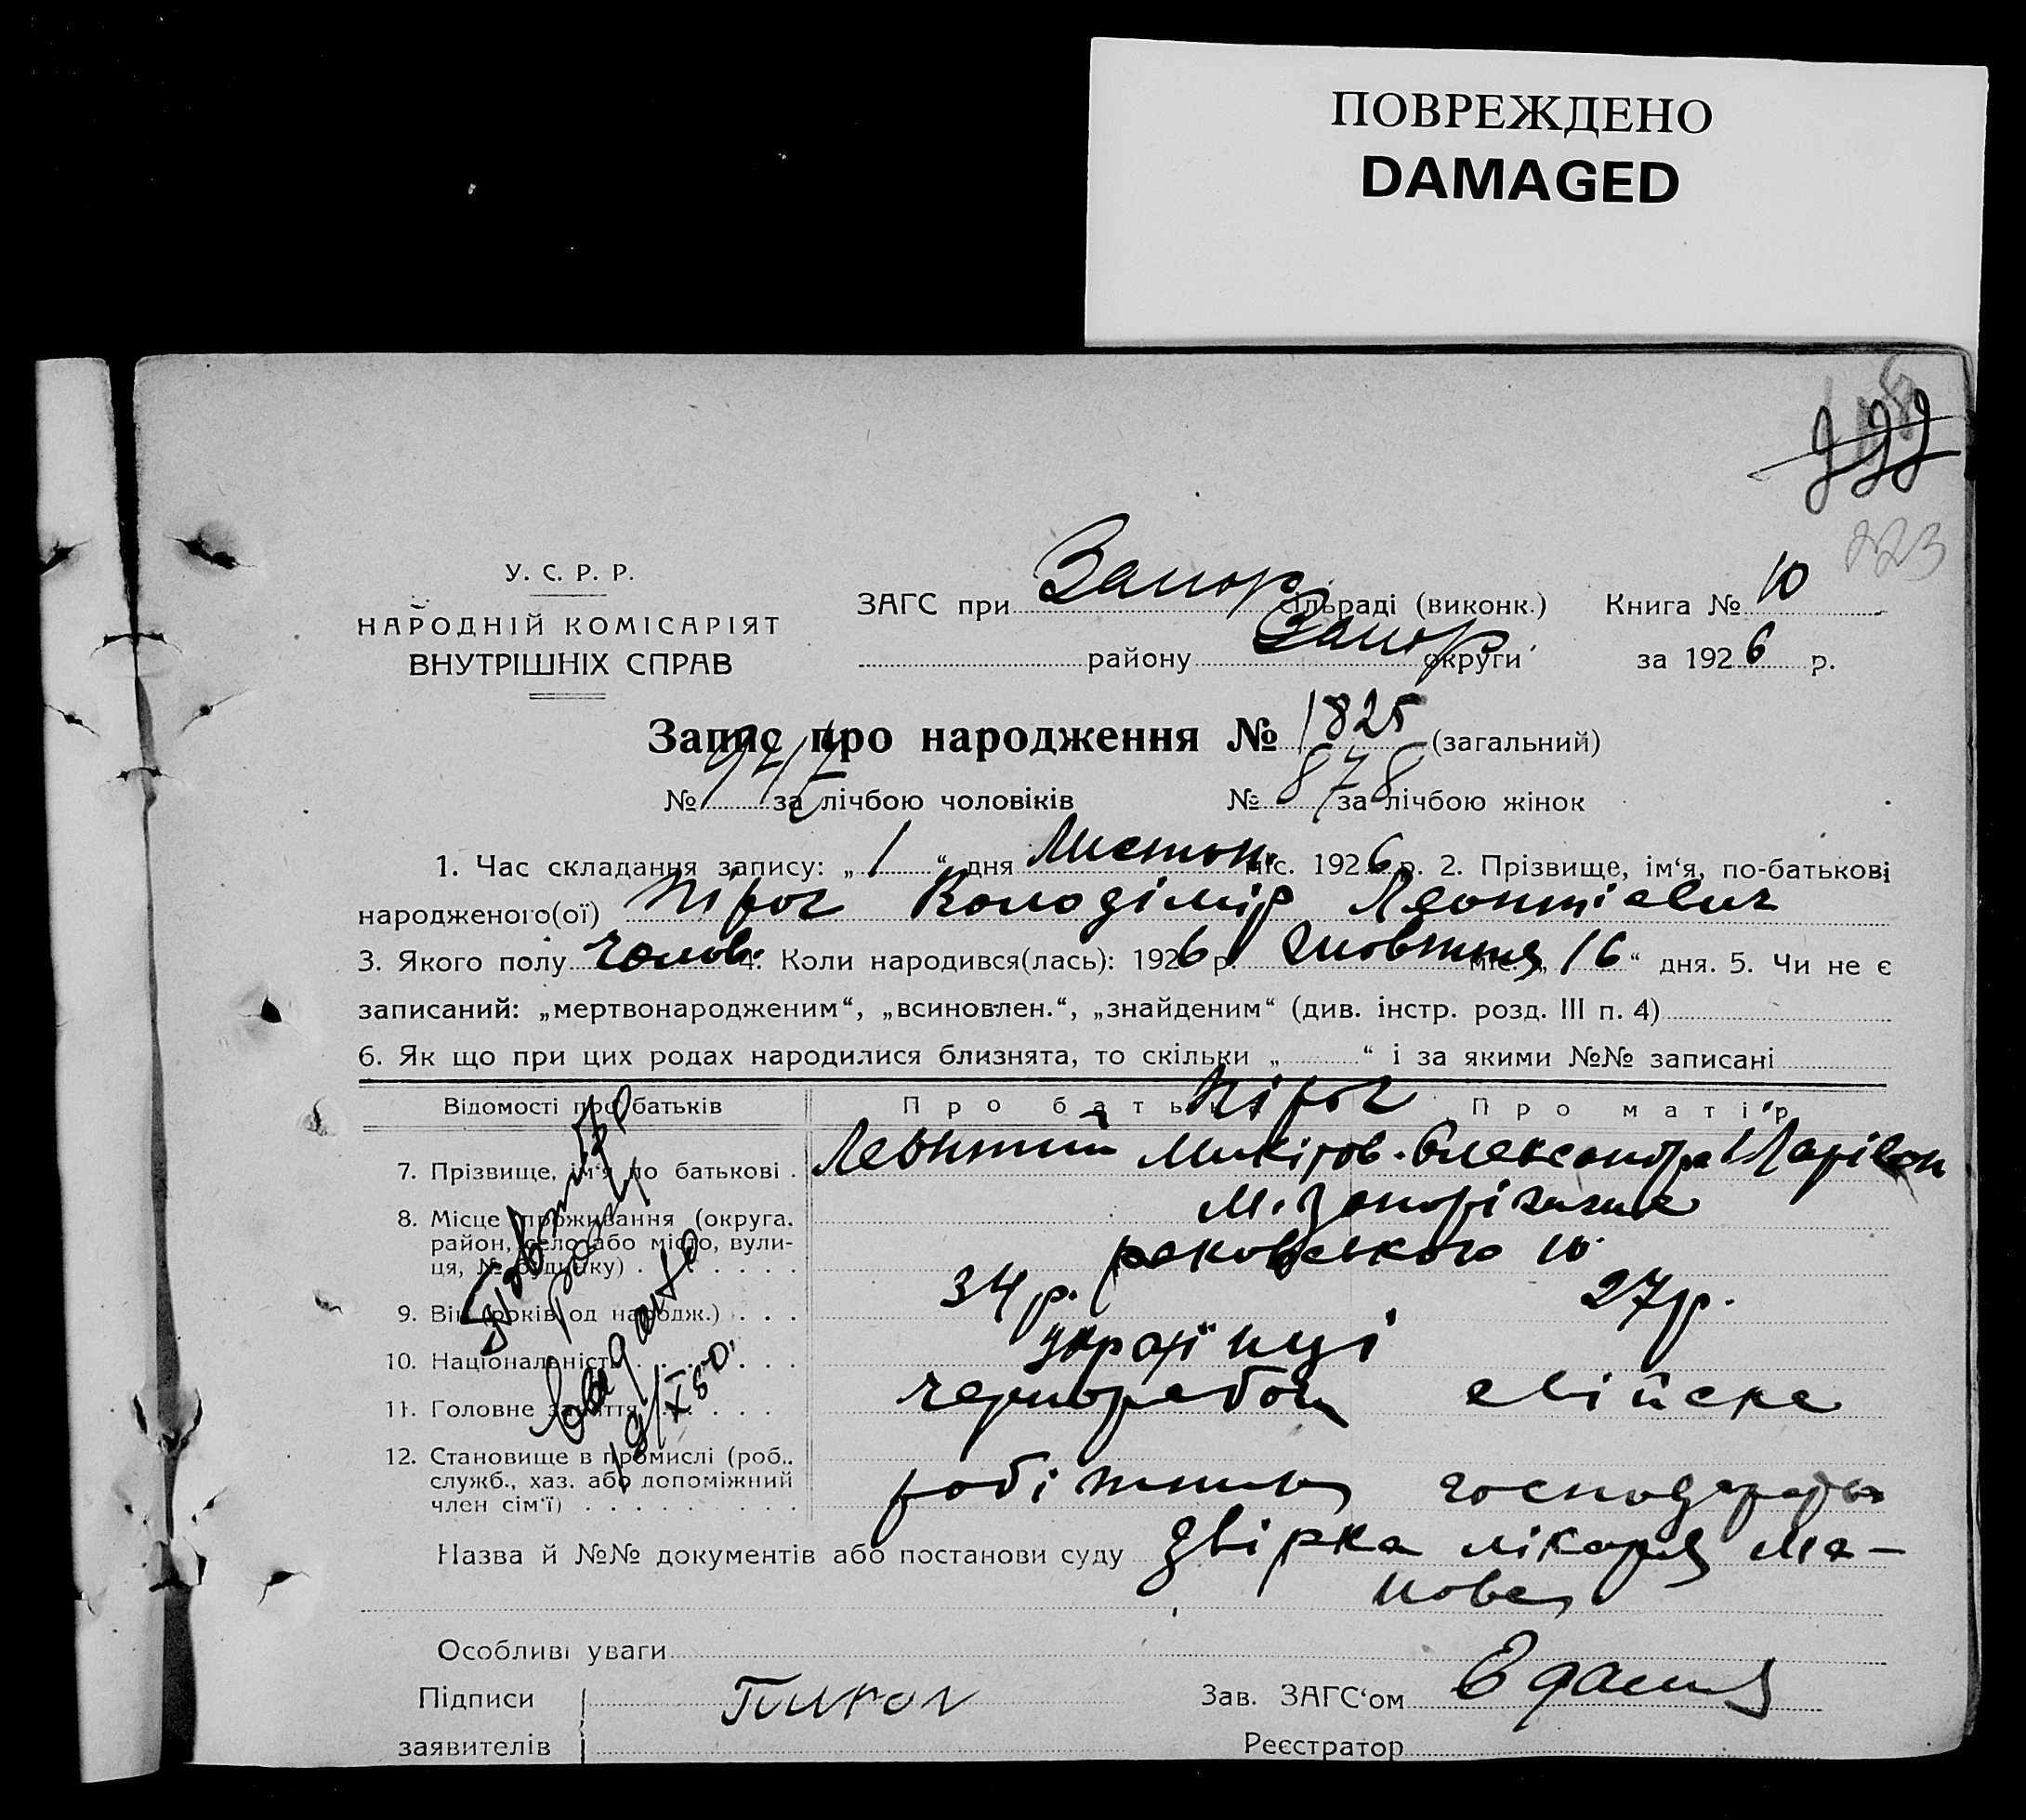 ПОВРЕЖДЕНО
DAMAGED
223
У. С. Р. Р.
НАРОДНІЙ КОМІСАРІЯТ
ВНУТРІШНІХ СПРАВ
ЗАГС при Запор. сільраді (виконк.) Книга № 10
району Запор округи за 1926 р.
Запис про народження № 1825 (загальний)
№ за лічбою чоловіків № 878 за лічбою жінок
1. Час складання запису: „1“ дня Листоп. міс. 1926 р. 2. Прізвище, ім‘я, по-батькові
народженого(ої) Пірог Володімір Леонтіевич
3. Якого полу Чолов. 4. Коли народився(лась): 1926 р. Жовтня міс. „16“ дня. 5. Чи не є
записаний: „мертвонародженим“, „всиновлен.“, „знайденим“ (див. інстр. розд. III п. 4)
6. Як що при цих родах народилися близнята, то скільки „ “ і за якими №№ записані
Відомості про батьків Про батька Про матір
Пірог
7. Прізвище, ім‘я по батькові . Леонтий Микітов. Олександра Ларівон
8. Місце проживання (округа, м. Запоріжжя
район, село або місто, вули-
ця, № будинку) . . . . . . . раковського 10
9. Вік (років од народж.) . . . 34 р. 27 р.
10. Національність . . . . . . . українці
11. Головне заняття . . . . . чорнораб. хвійска
12. Становище в промислі (роб.,
служб., хаз. або допоміжний робітник господарка
член сім‘ї) . . . . . . . . .
Назва й №№ документів або постанови суду двірка лікаря Ма-
нова
Особливі уваги
Підписи Пирог Зав. ЗАГС‘ом
заявителів Реєстратор